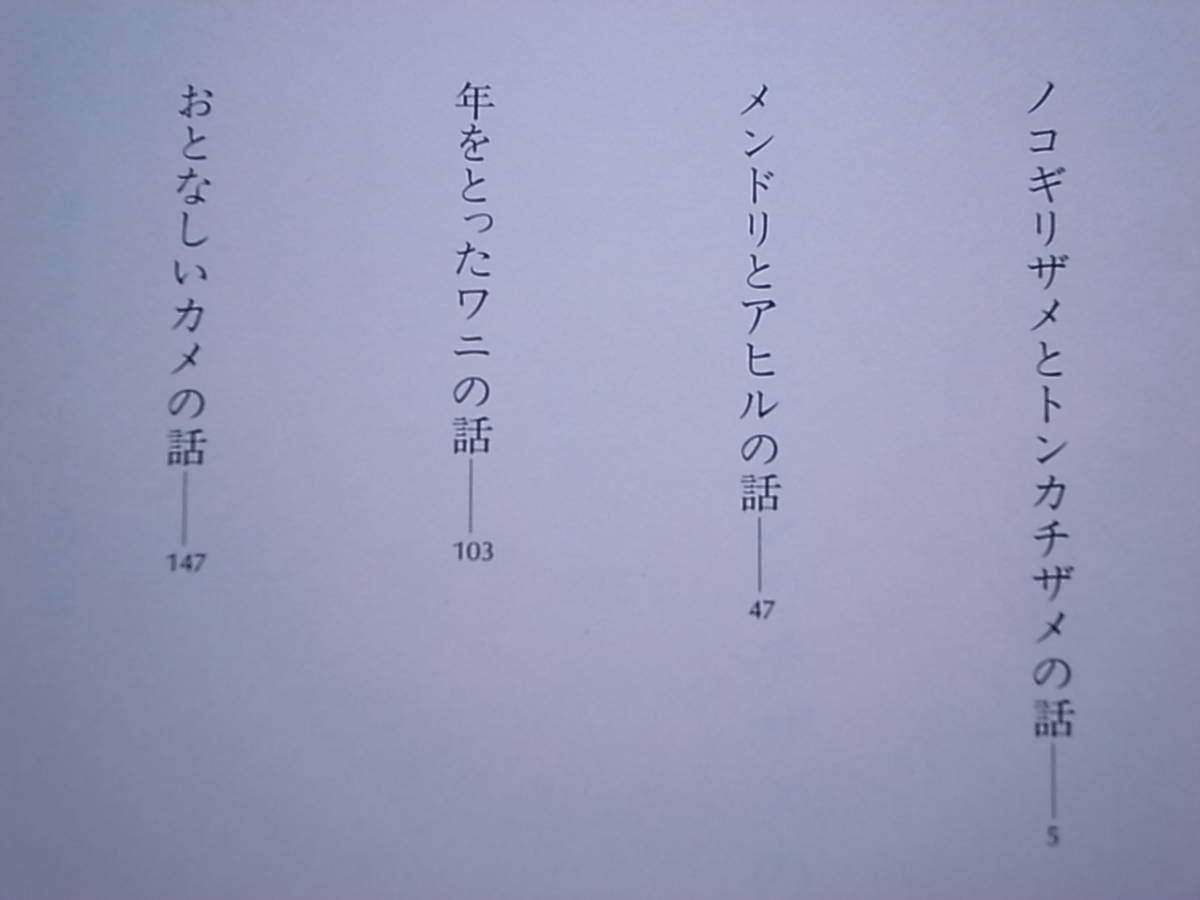 ノコギリザメとトンカチザメの話──5
メンドリとアヒルの話──47
年をとったワニの話──103
おとなしいカメの話──147